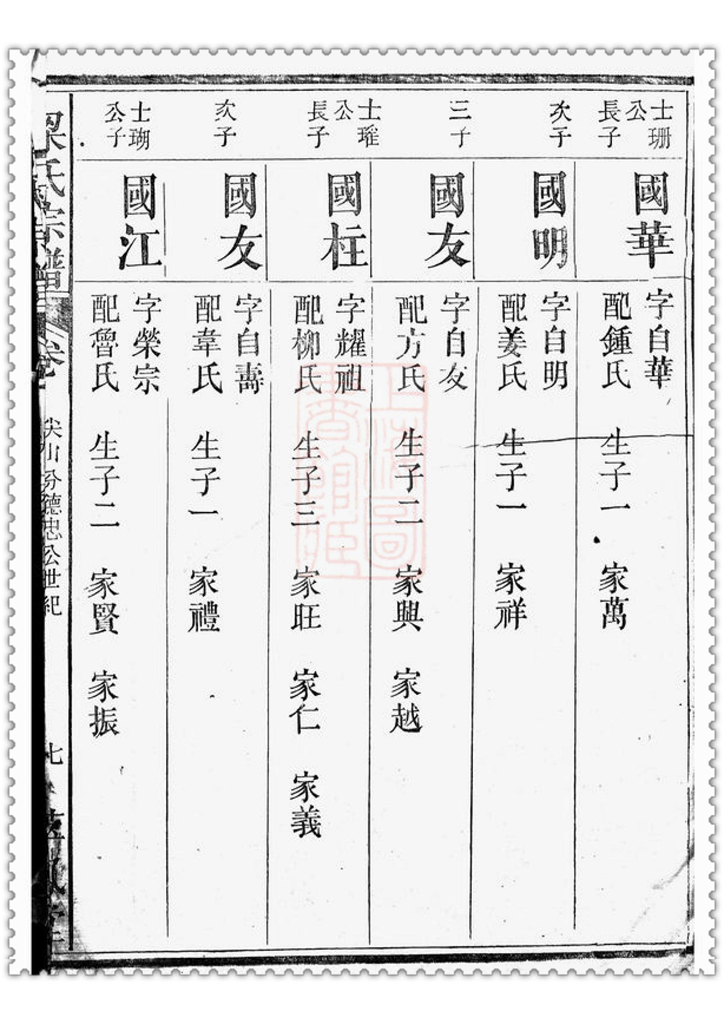 士珊公長子
國華
字自華
配鍾氏 生子一 家萬
次子
國明
字自明
配姜氏 生子一 家祥
三子
國友
字自友
配方氏 生子二 家興 家越
士璀公長子
國柱
字耀祖
配柳氏 生子三 家旺 家仁 家義
次子
國友
字自壽
配韋氏 生子一 家禮
士瑚公子
國江
字榮宗
配魯氏 生子二 家賢 家振
梁氏宗譜
卷
尖山分德忠公世紀
七
上海圖書館藏